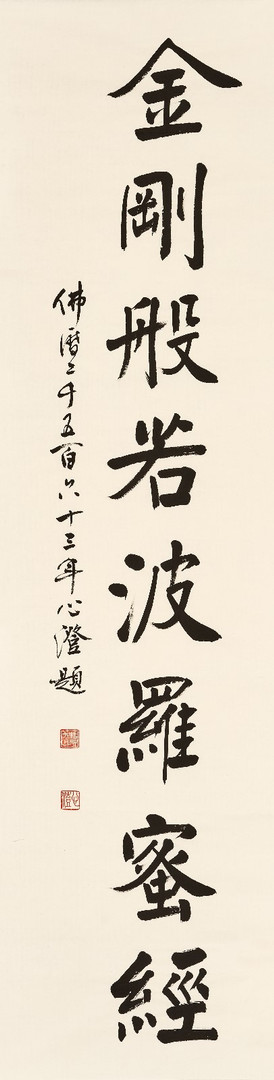 金剛般若波羅蜜經
佛曆二千五百六十三年心澄題